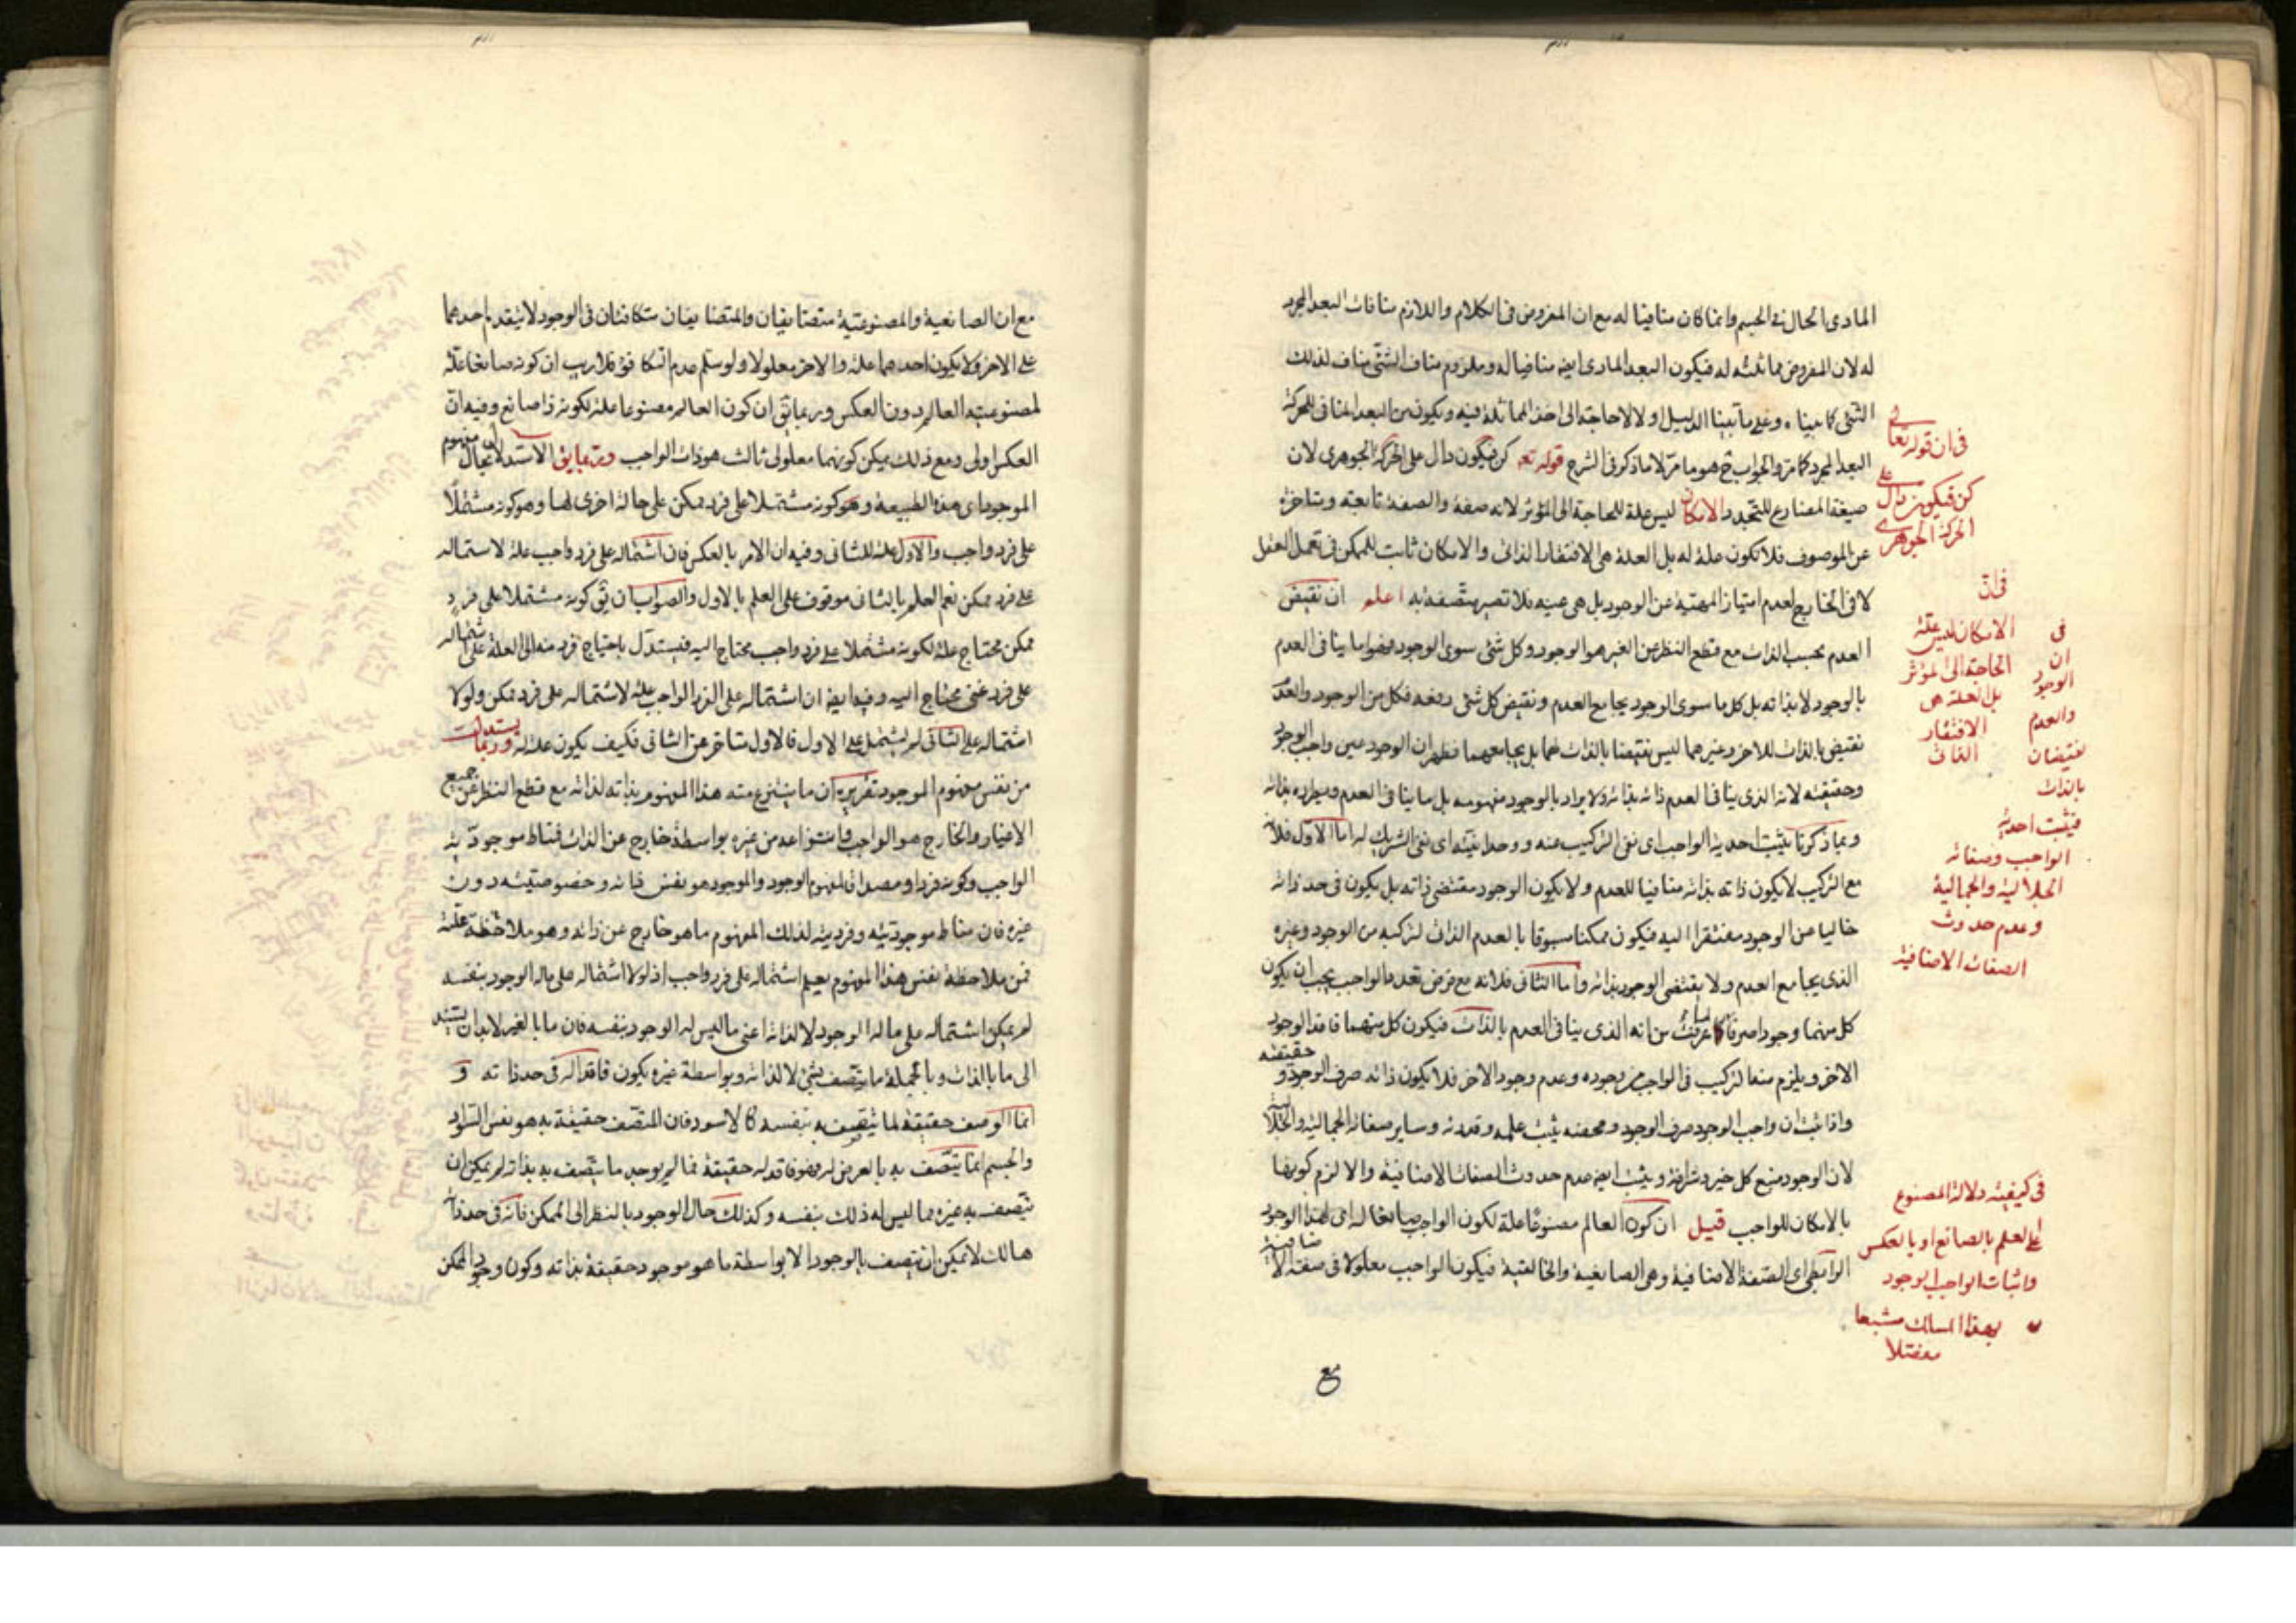 المادى الحال فى الجسم وانما كان منافيا له مع ان المفروض فى الكلام واللازم منافات البعد المجرد
له لان المفروض مماثلته له فيكون البعد المادى ايضا منافيا له وملزوم مناف الشئ مناف لذلك
الشئ كما بينا وعلى ما بينا الدليل اولا لا حاجة الى اخذ المماثلة فيه ويكون بين البعد المنافى للحركة
البعد المجرد كما مر والجواب ح هو ما مر لا ما ذكر فى الشرح قوله تعه كن فيكون دال على الحركة الجوهرى لان
صيغة المضارع للتجدد والامكان ليس علة للحاجة الى المؤثر لانه صفة والصفة تابعته ومتاخرة
عن الموصوف فلا تكون علة له بل العلة هى الافتقار الذاتى والامكان ثابت للممكن فى تعمل العقل
لا فى الخارج لعدم امتياز المهية عن الوجود بل هى عينه فلا تصير متصفة به اعلم ان نقيض
العدم بحسب الذات مع قطع النظر عن الغير هو الوجود وكل شئ سوى الوجود فهو اما ينافى العدم
بالوجود لا بذاته بل كل ما سوى الوجود يجامع العدم ونقيض كل شئ رفعه فكل من الوجود والعدم
نقيض بالذات للاخر وغيرهما ليس نقيضا بالذات لهما بل يجامعهما فظهر ان الوجود عين واجب الوجود
وحقيقته لانه الذى ينافى العدم ذاته بذاته ولا يراد بالوجود مفهومه بل ما ينافى العدم ويطرده بذاته
وبما ذكرنا يثبت احدية الواجب اى نفى التركيب عنه ووحدانيته اى نفى الشريك له اما الاول فلان
مع التركيب لا يكون ذاته بذاته منافيا للعدم ولا يكون الوجود مقتضى ذاته بل يكون فى حد ذاته
خاليا من الوجود مفتقرا اليه فيكون ممكنا مسبوقا بالعدم الذات لتركبه من الوجود وغيره
الذى يجامع العدم ولا يقتضى الوجود بذاته واما الثانى فلانه مع فرض تعدد الواجب يجب ان يكون
كل منهما وجودا صرفا لما عرفت من انه الذى ينافى العدم بالذات فيكون كل منهما فاقد الوجود
الاخر ويلزم منه التركيب فى الواجب من وجوده وعدم وجود الاخر فلا يكون ذاته صرف الوجود و حقيقته
واذا ثبت ان واجب الوجود صرف الوجود ومحضه يثبت علمه وقدرته وساير صفاته الجمالية والجلالية
لان الوجود منبع كل خير وشرافة ويثبت ايضا عدم حدوث الصفات الاضافية والا لزم كونها
بالامكان للواجب قيل ان كون العالم مصنوعا علة لكون الواجب صانعا له اى لهذا الوجود
الرابطى اى الصفة الاضافية وهو الصانعية والخالقية فيكون الواجب معلولا فى صفته الاضافية
مع
فى ان قوله تعالى
كن فيكون دال على
الحركة الجوهرى
فى ان
الامكان ليس علة
الحاجة الى المؤثر
بل العلة هى
الافتقار
الذاتى
فى
ان
الوجود
والعدم
نقيضان
بالذات
فيثبت احدية
الواجب وصفاته
الجلالية والجمالية
وعدم حدوث
الصفات الاضافية
فى كيفية دلالة المصنوع
على العلم بالصانع او بالعكس
واثبات الواجب الوجود
بهذا المسالك مشبعا
مفصلا
مع ان الصانعية والمصنوعية متضايفان والمتضايفان متكافئان فى الوجود لا يتقدم احدهما
على الاخر ولا يكون احدهما علة والاخر معلولا ولو سلم عدم التكافؤ فلا ريب ان كونه صانعا علة
لمصنوعية العالم دون العكس وربما يق ان كون العالم مصنوعا علة لكونه ذا صانع وفيه ان
العكس اولى ومع ذلك يمكن كونهما معلولى ثالث هو ذات الواجب وربما يق الاستدلال بحال مفهوم
الموجود اى هذه الطبيعة وهو كونه مشتملا على فرد ممكن على حالة اخرى لها وهو كونه مشتملا
على فرد واجب والاول علة للثانى وفيه ان الامر بالعكس فان اشتماله على فرد واجب علة لاشتماله
على فرد ممكن نعم العلم بالثانى موقوف على العلم بالاول والصواب ان يق كونه مشتملا على فرد
ممكن محتاج علة لكونه مشتملا على فرد واجب محتاج اليه فيستدل باحتياج فرد منه الى العلة على اشتماله
على فرد غنى محتاج اليه وفيه ايضا ان اشتماله على الفرد الواجب علة لاشتماله على فرد ممكن ولولا
اشتماله على الثانى لم يشتمل على الاول فالاول متاخر عن الثانى فكيف يكون علة له وربما يستدل
من نفس مفهوم الموجود تقريره ان ما ينتزع منه هذا المفهوم بذاته لذاته مع قطع النظر عن جميع
الاغيار والخارج هو الواجب وانتزاعه من غيره بواسطة خارج عن الذات فمناط موجودية
الواجب وكونه فردا ومصداقا لمفهوم الوجود والموجود هو نفس ذاته وخصوصيته دون
غيره فان مناط موجوديته وفرديته لذلك المفهوم ما هو خارج عن ذاته وهو ملاحظة علته
فمن ملاحظة نفس هذا المفهوم يعلم اشتماله على فرد واجب اذ لولا اشتماله على ماله الوجود بنفسه
لم يمكن اشتماله على ما له الوجود لا لذاته اعنى ما ليس له الوجود بنفسه فان ما بالغير لا بد ان يستند
الى ما بالذات وبالجملة ما يتصف بشئ لا لذاته وبواسطة غيره يكون فاقدا له فى حد ذاته و
انما الوصف حقيقة لما يتصف به بنفسه كالاسود فان المتصف حقيقة به هو نفس السواد
والجسم انما يتصف به بالعرض فهو فاقد له حقيقة فما لم يوجد ما يتصف به بذاته لم يمكن ان
يتصف به غيره مما ليس له ذلك بنفسه وكذلك حال الوجود بالنظر الى الممكن فانه فى حد ذاته
هالك لا يمكن ان يتصف بالوجود الا بواسطة ما هو موجود حقيقة بذاته وكون وجود الممكن